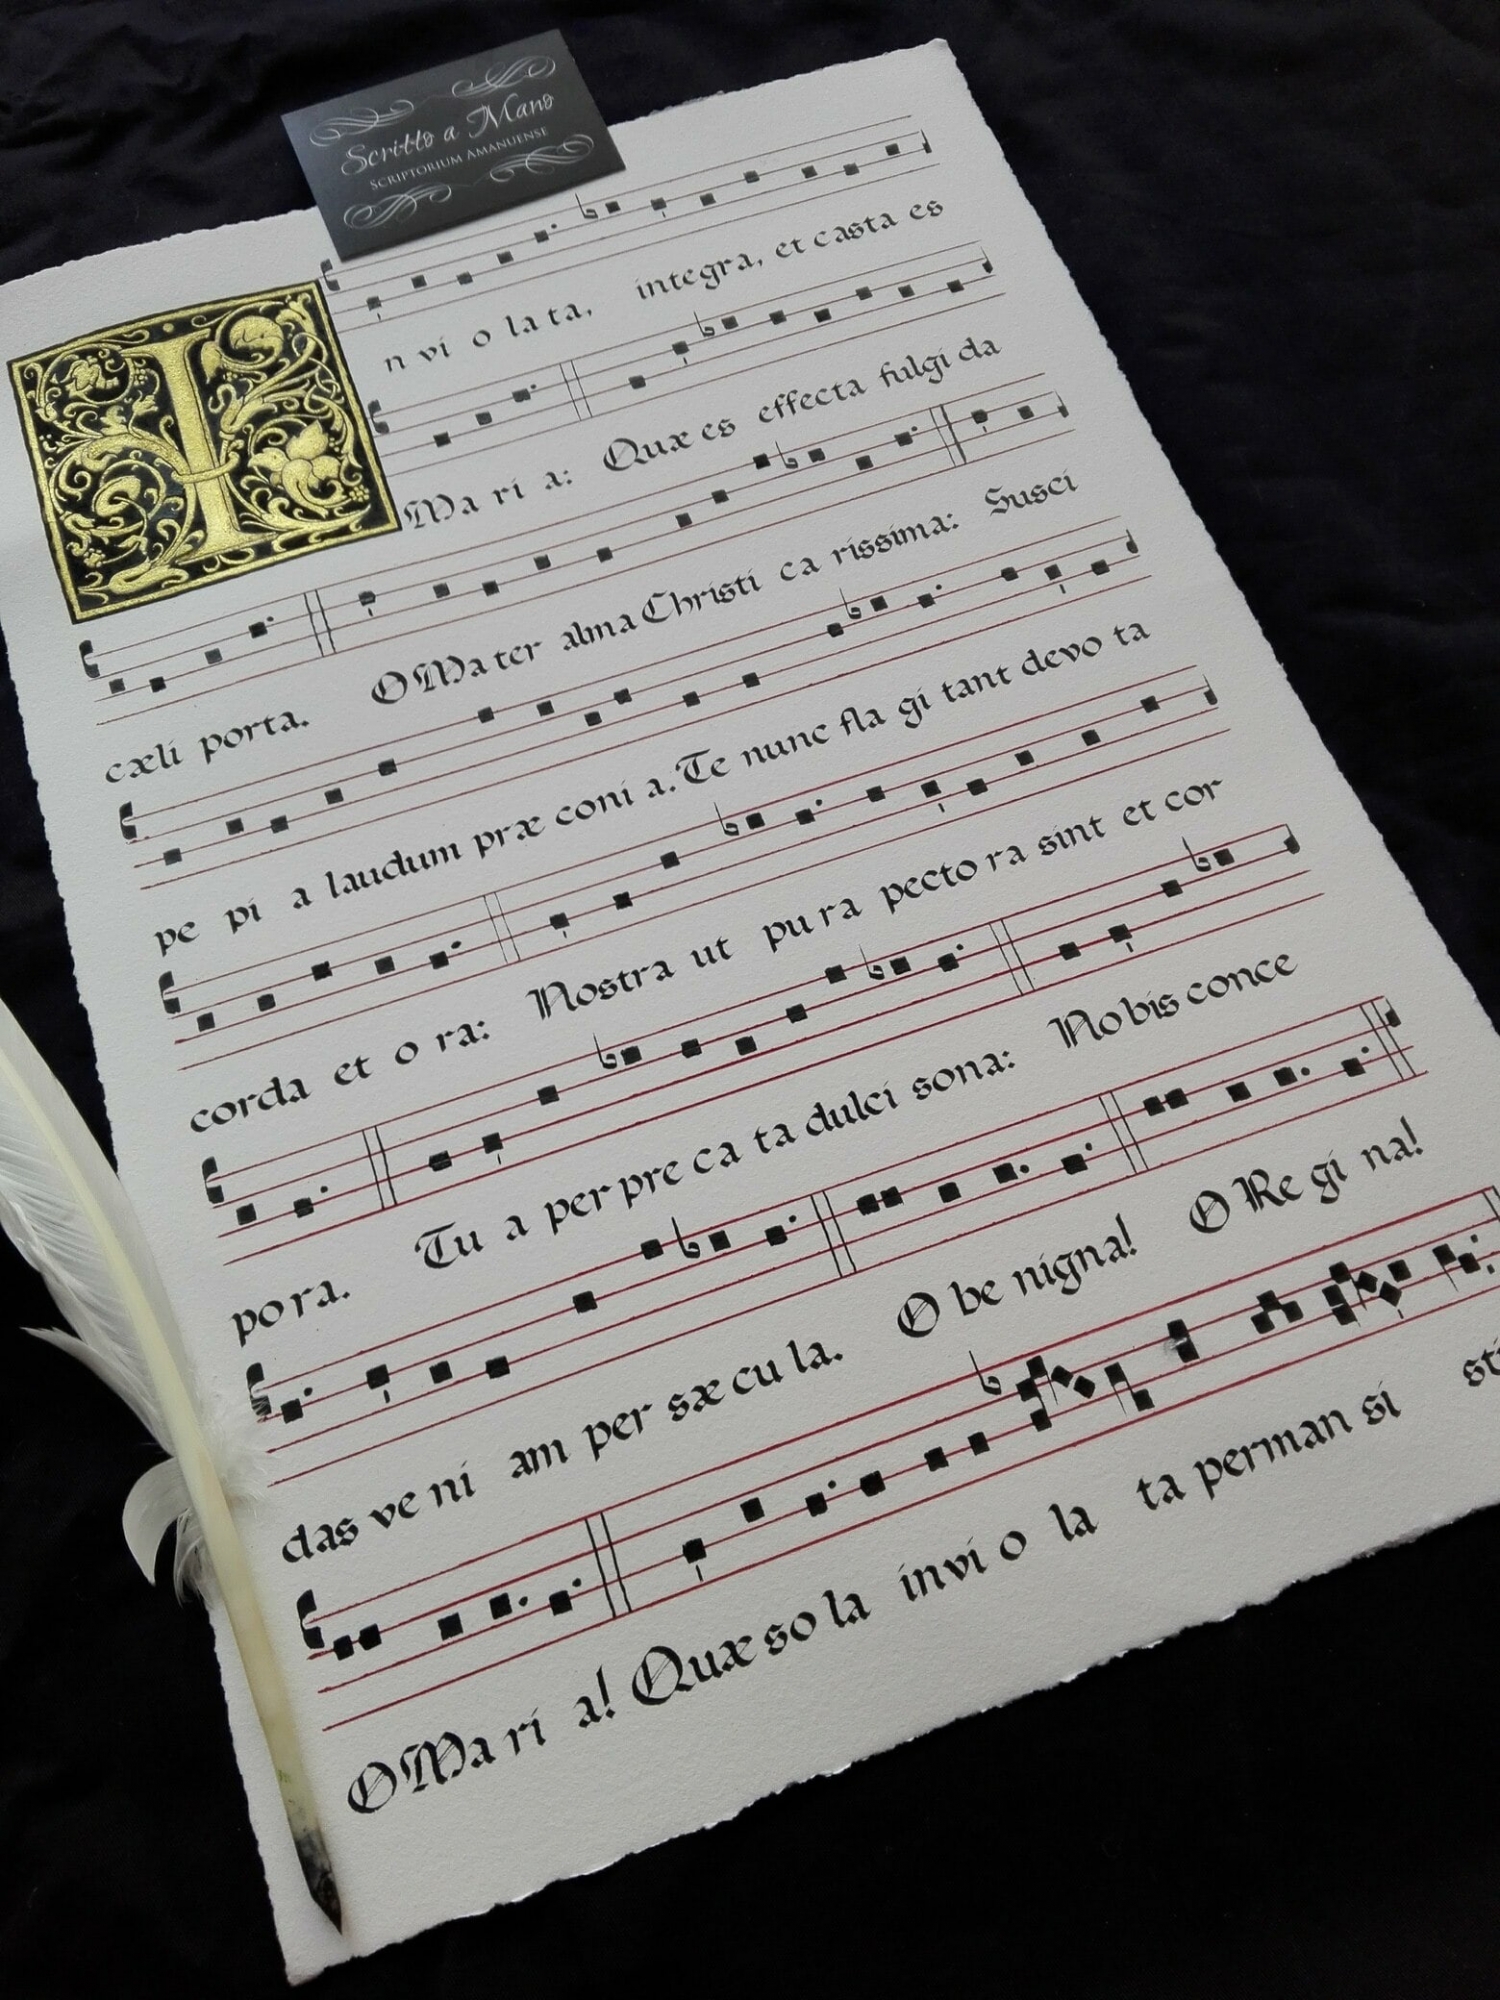 Scritto a Mano
SCRIPTORIUM AMANUENSE
I n vi o la ta, integra, et casta es
Ma ri a: Quæ es effecta fulgi da
cæli porta. O Ma ter alma Christi ca rissima: Susci
pe pi a laudum præ coni a. Te nunc fla gi tant devo ta
corda et o ra: Nostra ut pu ra pecto ra sint et cor
po ra. Tu a per pre ca ta dulci sona: No bis conce
das ve ni am per sæ cu la. O be nigna! O Re gi na!
O Ma ri a! Quæ so la invi o la ta perman si